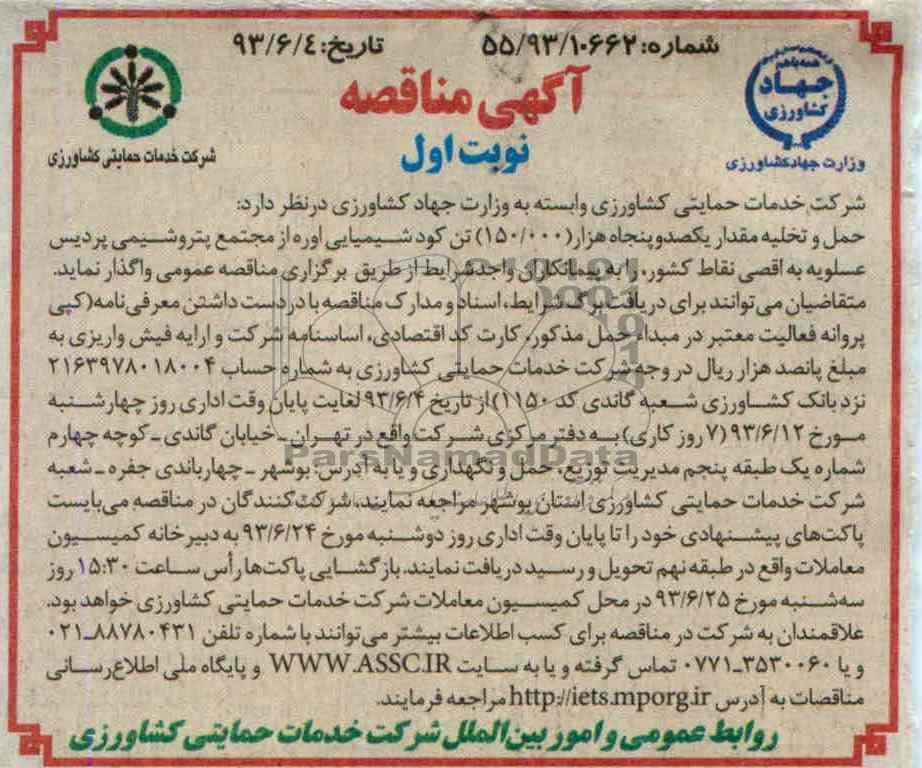 شماره: ۵۵/۹۳/۱۰۶۶۲
تاریخ: ۹۳/۶/۴
همه با هم
جهاد
کشاورزی
وزارت جهاد کشاورزی
شرکت خدمات حمایتی کشاورزی
آگهی مناقصه
نوبت اول
شرکت خدمات حمایتی کشاورزی وابسته به وزارت جهاد کشاورزی درنظر دارد:
حمل و تخلیه مقدار یکصدوپنجاه هزار(۱۵۰/۰۰۰) تن کود شیمیایی اوره از مجتمع پتروشیمی پردیس
عسلویه به اقصی نقاط کشور، را به پیمانکاران واجدشرایط از طریق برگزاری مناقصه عمومی واگذار نماید.
متقاضیان می‌توانند برای دریافت برگ شرایط، اسناد و مدارک مناقصه با دردست داشتن معرفی‌نامه(کپی
پروانه فعالیت معتبر در مبداء حمل مذکور، کارت کد اقتصادی، اساسنامه شرکت و ارایه فیش واریزی به
مبلغ پانصد هزار ریال در وجه شرکت خدمات حمایتی کشاورزی به شماره حساب ۲۱۶۳۹۷۸۰۱۸۰۰۴
نزد بانک کشاورزی شعبه گاندی کد ۱۱۵۰) از تاریخ ۹۳/۶/۴ لغایت پایان وقت اداری روز چهارشنبه
مورخ ۹۳/۶/۱۲ (۷ روز کاری) به دفتر مرکزی شرکت واقع در تهران ـ خیابان گاندی ـ کوچه چهارم
شماره یک طبقه پنجم مدیریت توزیع، حمل و نگهداری و یا به آدرس: بوشهر ـ چهارباندی جفره ـ شعبه
شرکت خدمات حمایتی کشاورزی استان بوشهر مراجعه نمایند، شرکت‌کنندگان در مناقصه می‌بایست
پاکت‌های پیشنهادی خود را تا پایان وقت اداری روز دوشنبه مورخ ۹۳/۶/۲۴ به دبیرخانه کمیسیون
معاملات واقع در طبقه نهم تحویل و رسید دریافت نمایند. بازگشایی پاکت‌ها رأس ساعت ۱۵:۳۰ روز
سه‌شنبه مورخ ۹۳/۶/۲۵ در محل کمیسیون معاملات شرکت خدمات حمایتی کشاورزی خواهد بود.
علاقمندان به شرکت در مناقصه برای کسب اطلاعات بیشتر می‌توانند با شماره تلفن ۸۸۷۸۰۴۳۱-۰۲۱
و یا ۳۵۳۰۰۶۰-۰۷۷۱ تماس گرفته و یا به سایت WWW.ASSC.IR و پایگاه ملی اطلاع‌رسانی
مناقصات به آدرس http://iets.mporg.ir مراجعه فرمایند.
روابط عمومی و امور بین‌الملل شرکت خدمات حمایتی کشاورزی
ParsNamadData